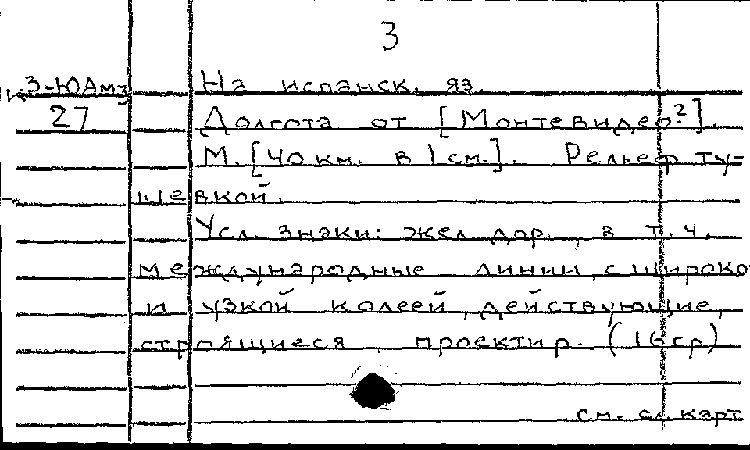 3
З-ЮАм3 На испанск. яз.
27 Долгота от [Монтевидео?].
М.[40 км. в 1 см.]. Рельеф ту=
шевкой.
Усл. знаки: жел. дор., в т. ч.
международные линии, с широко
и узкой колеей, действующие,
строящиеся, проектир. (16ср)
см. сл. карт